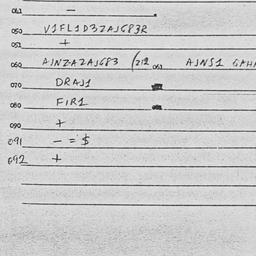 041 —
050 V1FL1D3ZAJG83R
051 +
060 AINZAZAJG83 (212 061 AJNS1 GAHA
070 DRAJ1
080 FIR1
090 +
091 — = $
092 +